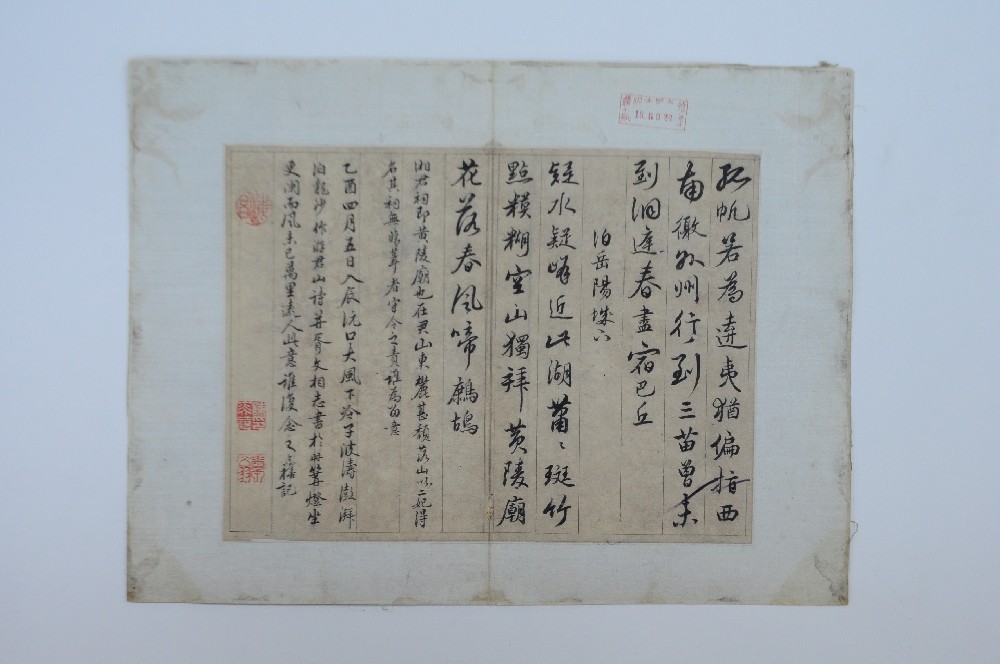 孤帆若為達夷猶偏指西
南徼外州行行到三苗曾未
到洞庭春盡宿巴丘
泊岳陽城下
疑水疑峰近此湖蕭蕭斑竹
點模糊空山獨拜黃陵廟
花落春風啼鷓鴣
湘君祠即黃陵廟也在君山東麓甚頹落山以二妃得
名其祠無葺者守令之責誰為留意
乙酉四月五日入辰沅口大風下冷子波濤澎湃
泊龍沙作游君山詩並胥文相志書於舟篝燈坐
更闌而風未已萬里遠人此意誰復念之 記